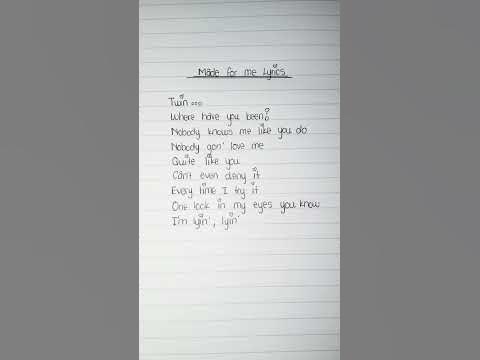 Made for me Lyrics
Twin...
Where have you been?
Nobody knows me like you do
Nobody gon' love me
Quite like you
Can't even deny it
Every time I try it
One look in my eyes you know
I'm lyin', lyin'